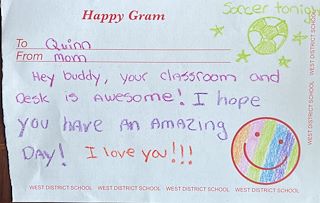 Happy Gram
Soccer tonight
To Quinn
From mom
Hey buddy, your classroom and
Desk is Awesome! I hope
you have An Amazing
Day! I love you!!!
WEST DISTRICT SCHOOL · WEST DISTRICT SCHOOL · WEST DISTRICT SCHOOL
WEST DISTRICT SCHOOL · WEST DISTRICT SCHOOL